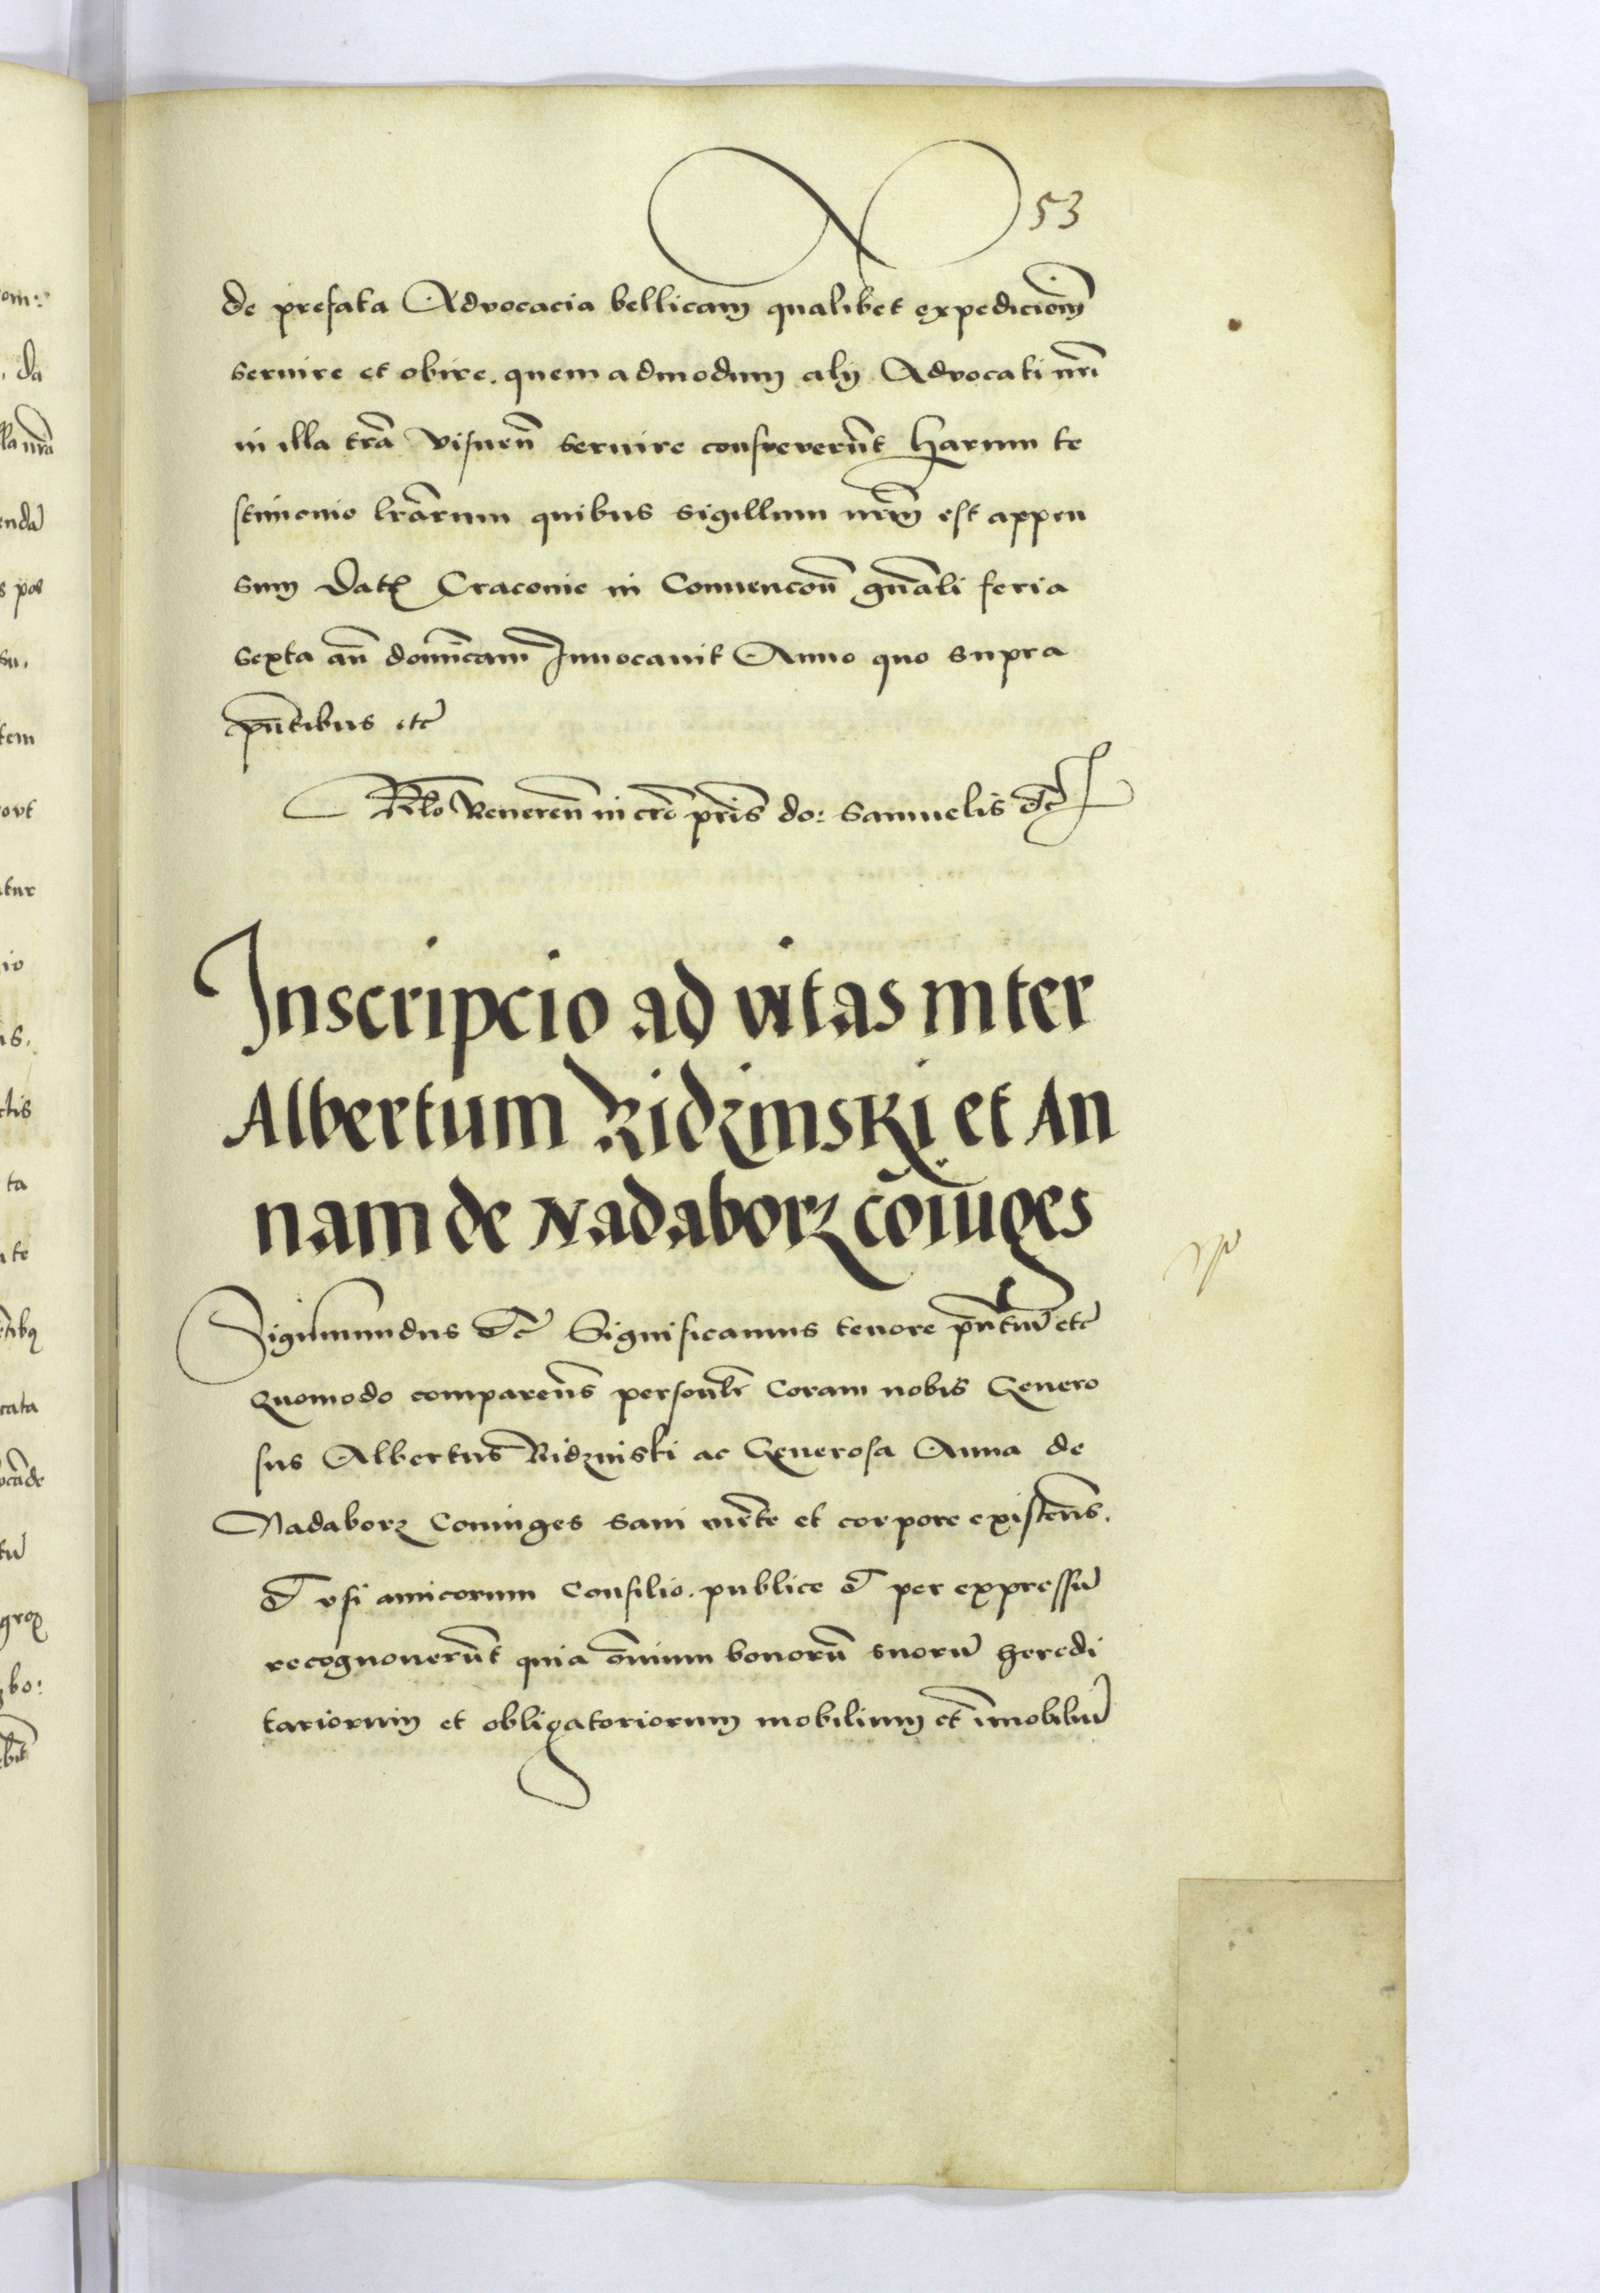 53
de prefata Advocacia bellicam qualibet expedicionē
servire et obire. quem admodum alij Advocati nr̄i
in illa tr̄a visneñ servire consveverūt Harum te
stimonio lr̄arum quibus sigillum nr̄m est appen
sum Dat Cracovie in Convencoñ gn̄ali feria
sexta añ dominicam Invocavit Anno quo supra
pñtibus etc̄
Rlo Venereñ in cr̄o pr̄is do: Samuelis etc̄
Inscripcio ad vitas inter
Albertum Ridzinski et An
nam de Nadaborz cōiuges
Sigismundus etc̄ Significamus tenore pñtiū etc̄
Quomodo compareñs personlr̄ Coram nobis Genero
sus Albertus Ridzinski ac Generosa Anna de
Nadaborz Coniuges sani mēte et corpore existeñs.
et vsi amicorum Consilio. publice et per expressū
recognoverūt quia om̄ium bonorū suorū heredi
tariorum et obligatoriorum mobilium et īmobiliū